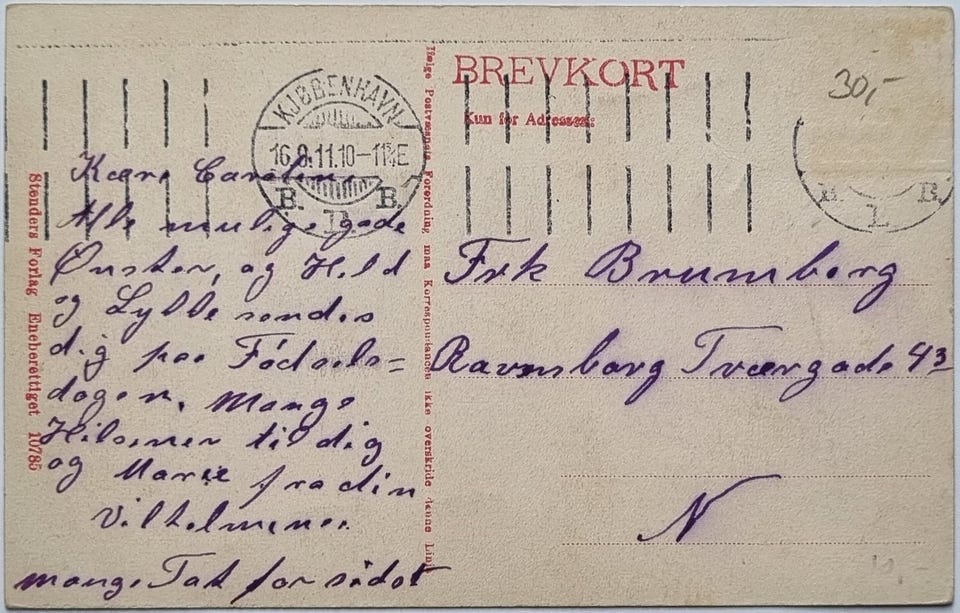 BREVKORT
Kun for Adressen:
30,-
KJØBENHAVN
16.9.11.10-11½E
B. B.
L
B. B.
L
Kære Caroline
Alle mulige gode
Ønsker, og Held
og Lykke sendes
dig paa Fødsels=
dagen. Mange
Hilsener til dig
og Marie fra din
Vilhelmine.
mange Tak for sidst
Frk Brumberg
Ravnsborg Tværgade 43
N
Stenders Forlag Eneberettiget 10785
Ifølge Postvæsnets Forordning maa Korrespondancen ikke overskride denne Linie